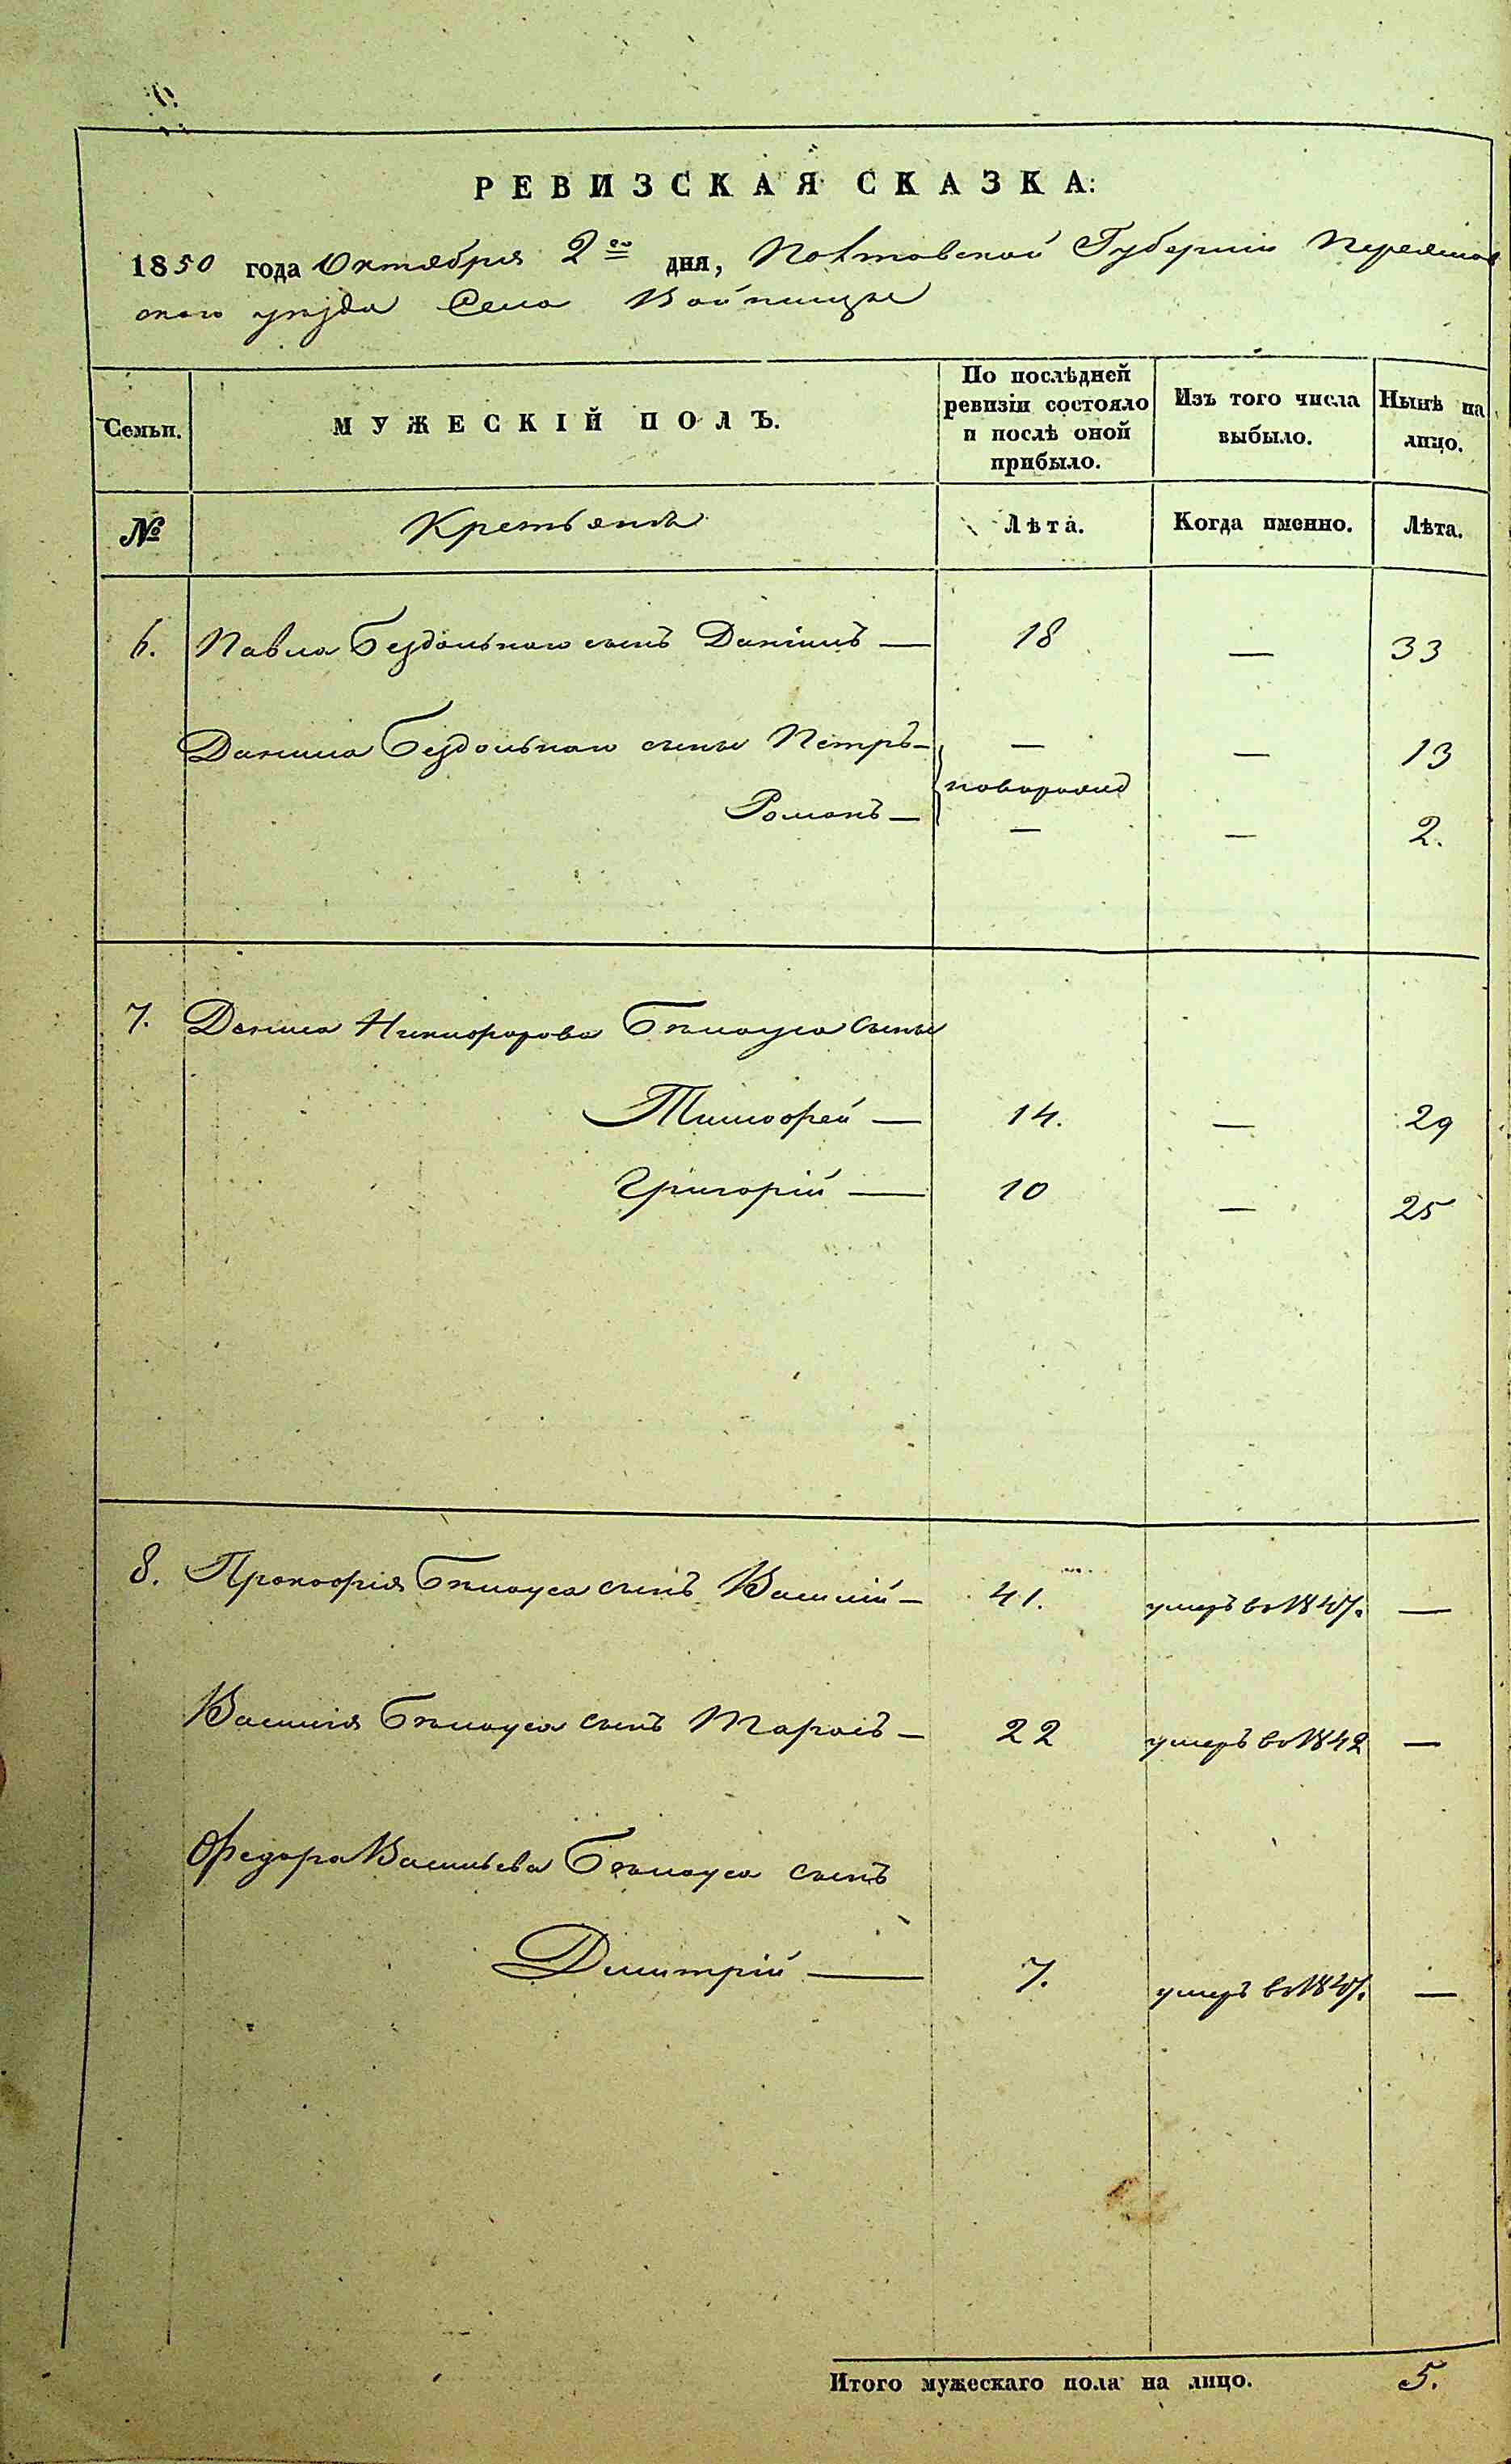 РЕВИЗСКАЯ СКАЗКА:
1850 года Октября 2го дня, Полтавской Губерніи Переяслов
ского уезда Села Войницы
Семьи. МУЖЕСКІЙ ПОЛЪ. По послѣдней ревизіи состояло и послѣ оной прибыло. Изъ того числа выбыло. Нынѣ на лицо.
№ Крестьяне Лѣта. Когда именно. Лѣта.
6. Павла Бездольнаго сынъ Даніилъ — 18 — 33
Данила Бездольнаго сыны Петръ — — — 13
новорожд
Романъ — — — 2.
7. Данила Никифорова Бѣлоуса сыны
Тимофей — 14. — 29
Григорій — 10 — 25
8. Прокофія Бѣлоуса сынъ Василій — 41. умеръ в 1847. —
Василія Бѣлоуса сынъ Тарасъ — 22 умеръ в 1842 —
Федора Васильева Бѣлоуса сынъ
Дмитрій — 7. умеръ в 1847. —
Итого мужескаго пола на лицо. 5.